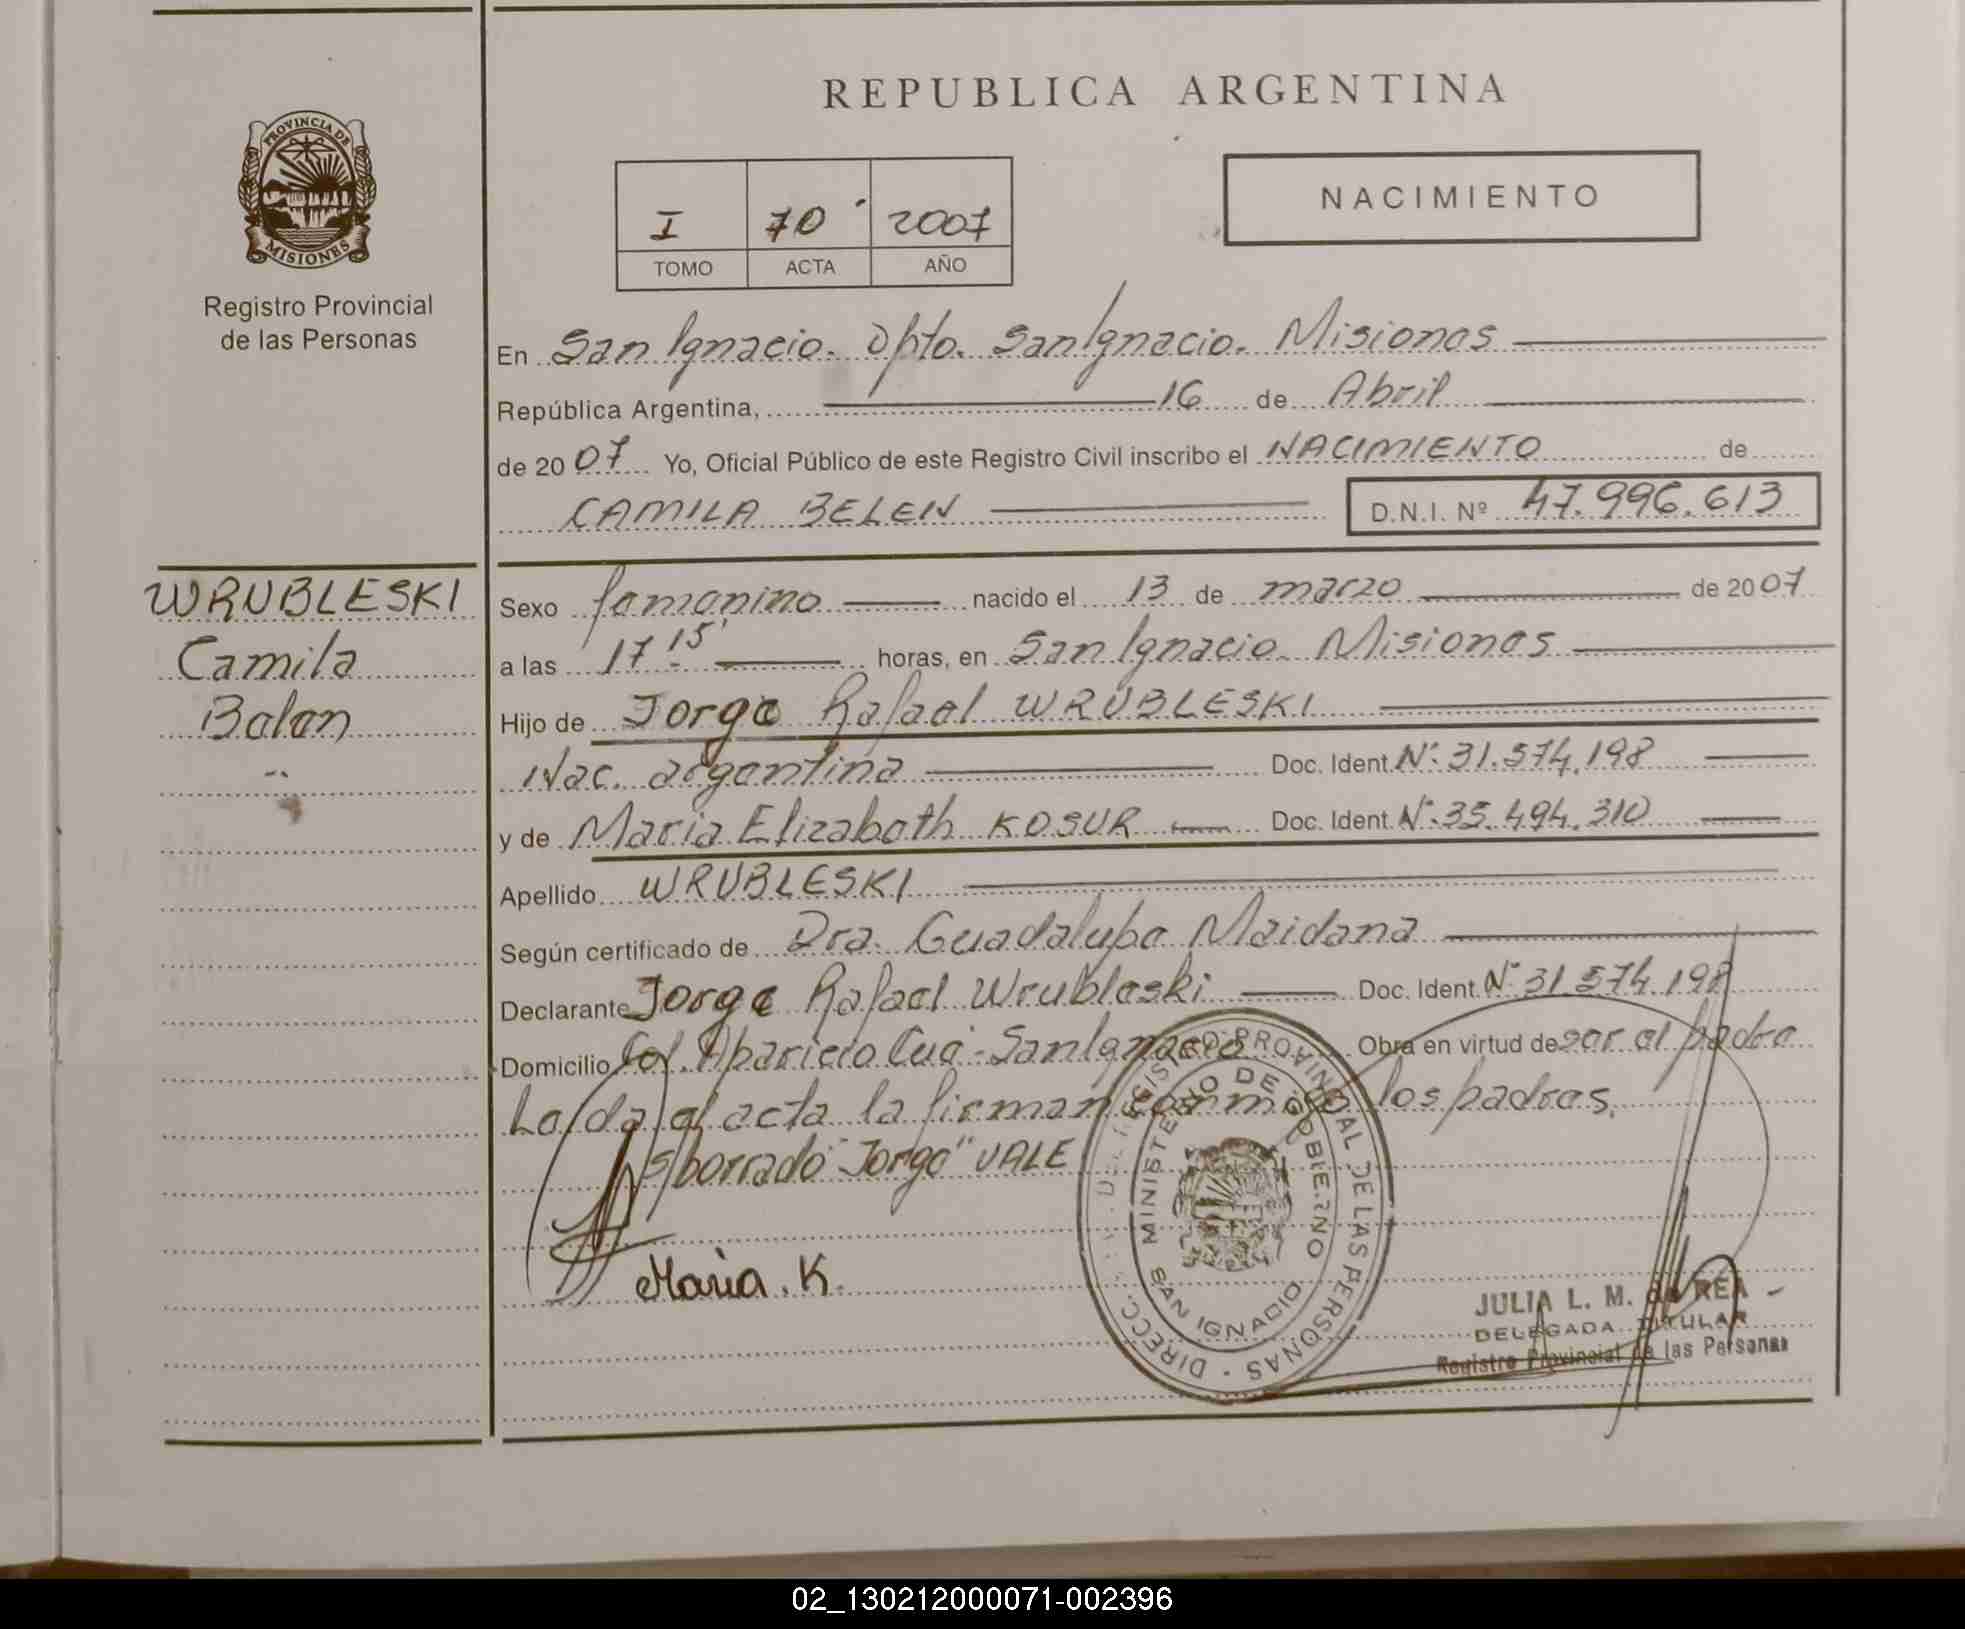 REPUBLICA ARGENTINA
PROVINCIA DE
MISIONES
Registro Provincial
de las Personas
I 70 2007
TOMO ACTA AÑO
NACIMIENTO
En San Ignacio. Dpto. San Ignacio. Misiones
República Argentina, 16 de Abril
de 2007 Yo, Oficial Público de este Registro Civil inscribo el NACIMIENTO de
CAMILA BELEN D.N.I. Nº 47.996.613
WRUBLESKI
Camila
Belen
Sexo femenino nacido el 13 de marzo de 2007
a las 17 15' horas, en San Ignacio. Misiones
Hijo de Jorge Rafael WRUBLESKI
Nac. argentina Doc. Ident. Nº: 31.574.198
y de Maria Elizabeth KOSUR Doc. Ident. Nº: 35.494.310
Apellido WRUBLESKI
Según certificado de Dra. Guadalupe Maidana
Declarante Jorge Rafael Wrubleski Doc. Ident. Nº 31.574.198
Domicilio Col. Aparicio Cué - San Ignacio Obra en virtud de ser el padre
Leida el acta la firman conmigo los padres.
S/borrado "Jorge" VALE
Maria. K.
REGISTRO PROVINCIAL DE LAS PERSONAS
MINISTERIO DE GOBIERNO
SAN IGNACIO
JULIA L. M. de REA
DELEGADA TITULAR
Registro Provincial de las Personas
02_130212000071-002396